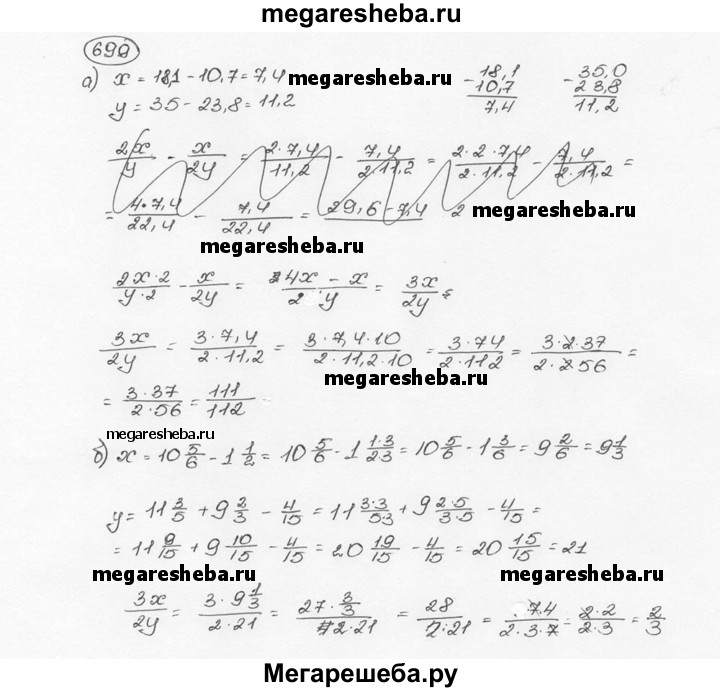 megaresheba.ru
690
а) x = 18,1 - 10,7 = 7,4
megaresheba.ru
y = 35 - 23,8 = 11,2
18,1
- 10,7
7,4
35,0
- 23,8
11,2
2x/y - x/2y = 2·7,4/11,2 - 7,4/2·11,2 = 2·2·7,4/2·11,2 - 7,4/2·11,2 =
= 4·7,4/22,4 - 7,4/22,4 = 29,6-7,4/2
megaresheba.ru
megaresheba.ru
2x·2/y·2 - x/2y = 4x - x/2·y = 3x/2y
3x/2y = 3·7,4/2·11,2 = 3·7,4·10/2·11,2·10 = 3·74/2·112 = 3·2·37/2·2·56 =
megaresheba.ru
= 3·37/2·56 = 111/112
megaresheba.ru
б) x = 10 5/6 - 1 1/2 = 10 5/6 - 1 1·3/2·3 = 10 5/6 - 1 3/6 = 9 2/6 = 9 1/3
y = 11 3/5 + 9 2/3 - 4/15 = 11 3·3/5·3 + 9 2·5/3·5 - 4/15 =
= 11 9/15 + 9 10/15 - 4/15 = 20 19/15 - 4/15 = 20 15/15 = 21
megaresheba.ru
megaresheba.ru
3x/2y = 3·9 1/3/2·21 = 27·3/3/2·21 = 28/2·21 = 7·4/2·3·7 = 2·2/2·3 = 2/3
Мегарешеба.ру